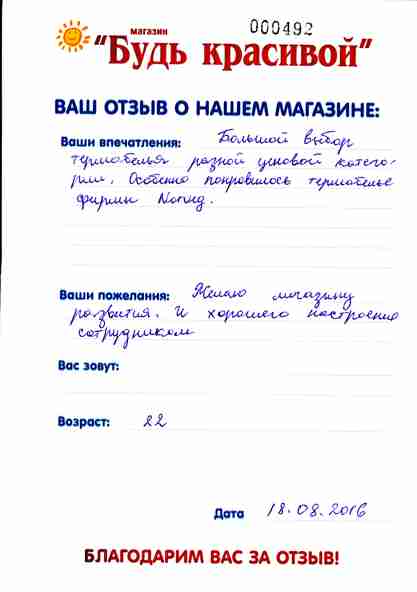 000492
магазин
"Будь красивой"
ВАШ ОТЗЫВ О НАШЕМ МАГАЗИНЕ:
Ваши впечатления: Большой выбор
термобелья разной ценовой катего-
рии. Особенно понравилось термобелье
фирмы Norveg.
Ваши пожелания: Желаю магазину
развития. И хорошего настроения
сотрудникам
Вас зовут:
Возраст: 22
Дата 18.08.2016
БЛАГОДАРИМ ВАС ЗА ОТЗЫВ!